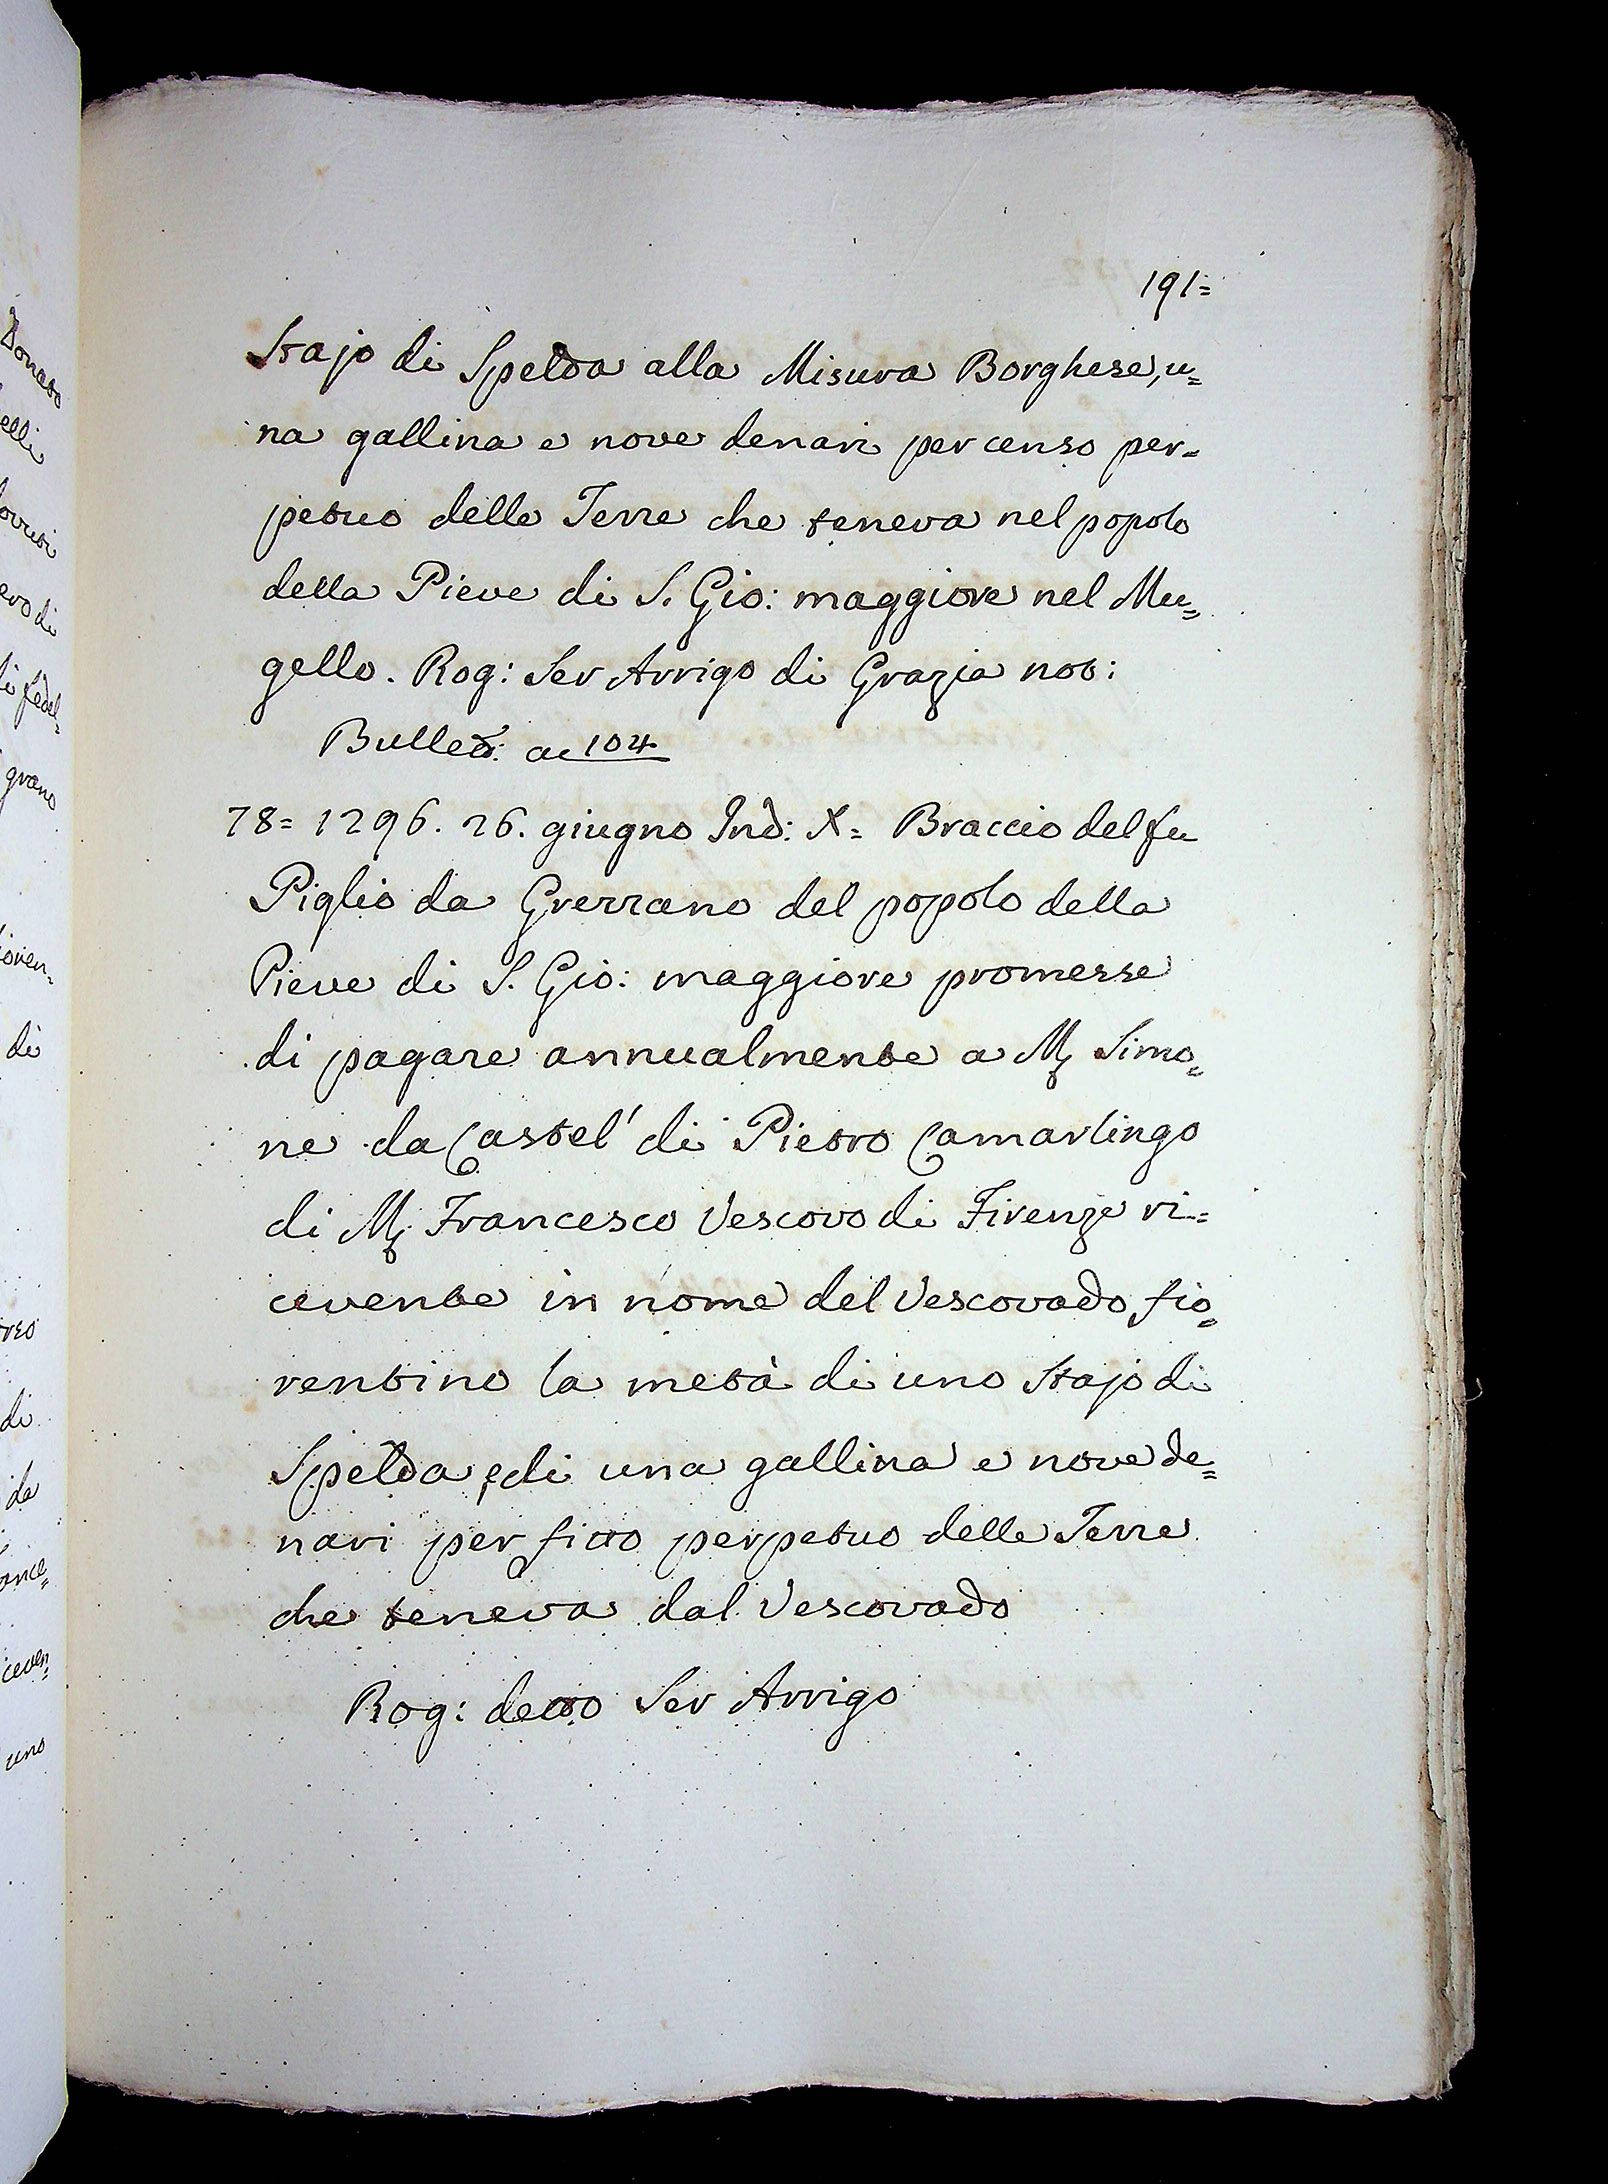 191=
Stajo di Spelda alla Misura Borghese, u=
na gallina e nove denari per censo per=
petuo delle Terre che teneva nel popolo
della Pieve di S. Gio: maggiore nel Mu=
gello. Rog: Ser Arrigo di Grazia not:
Bullett: a 104
78= 1296. 26. giugno Ind: X= Braccio del fu
Piglio da Grezzano del popolo della
Pieve di S. Gio: maggiore promesse
di pagare annualmente a M. Simo=
ne da Castel' di Pietro Camarlingo
di M. Francesco Vescovo di Firenze ri=
cevente in nome del Vescovado fio=
rentino la metà di uno Stajo di
Spelda, e di una gallina e nove de=
nari per fitto perpetuo delle Terre
che teneva dal Vescovado
Rog: detto Ser Arrigo